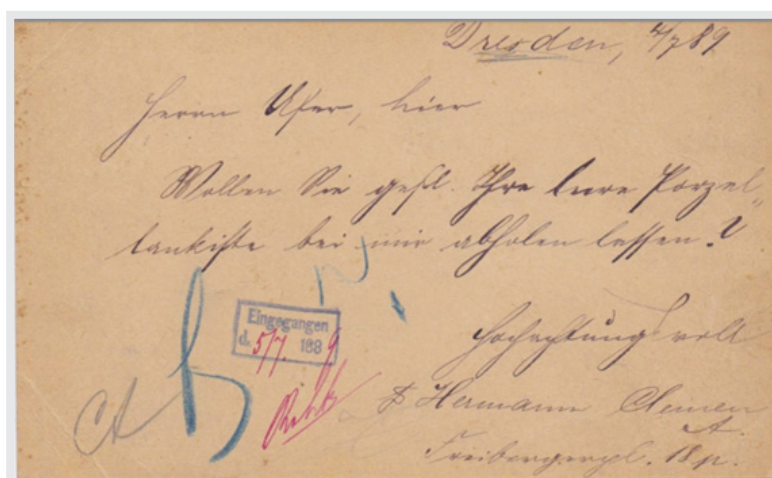 Dresden, 4/7 89
Herrn Ufer, hier
Wollen Sie gefl. Ihre leere Porzel-
lankiste bei mir abholen lassen?
Eingegangen
d. 5/7. 1889
Hochachtungsvoll
Hermann
Freibergerpl. 18 p.